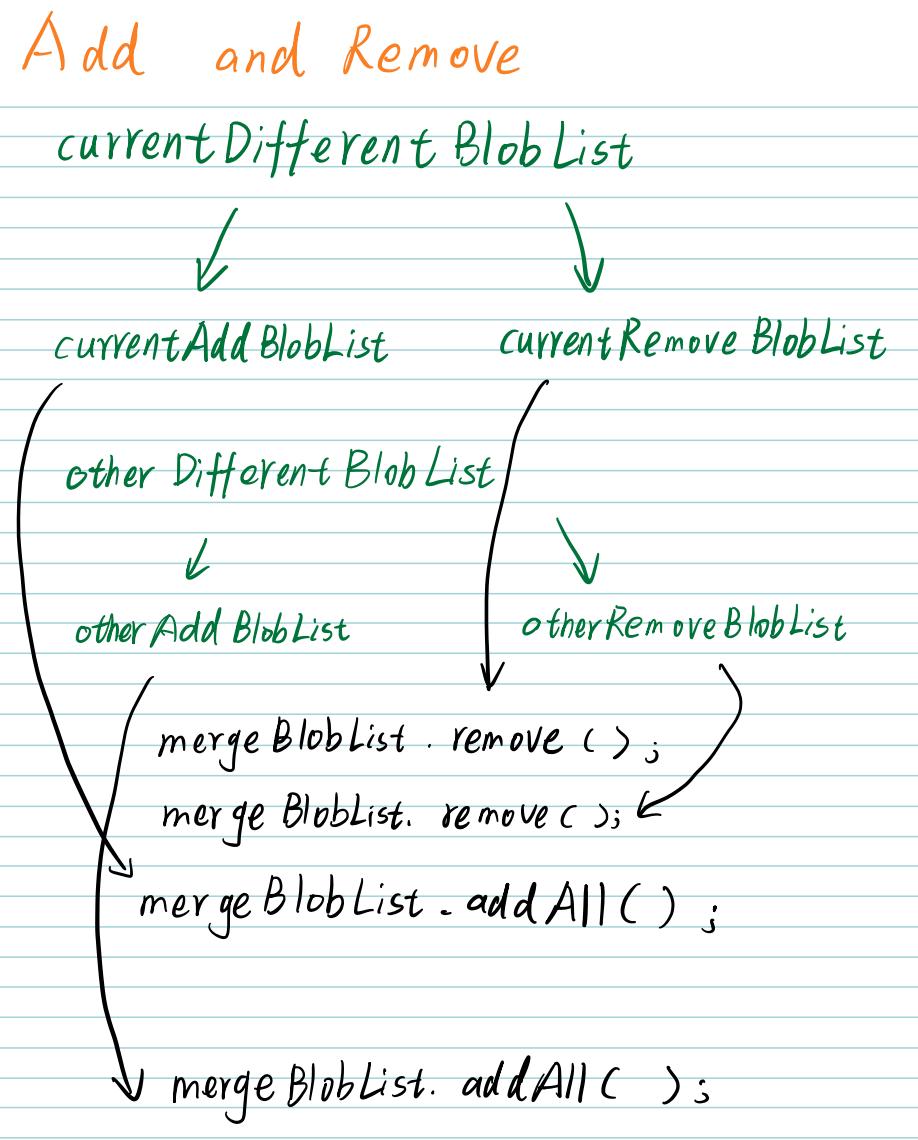 Add and Remove
currentDifferentBlobList
currentAddBlobList currentRemoveBlobList
other DifferentBlobList
otherAddBlobList otherRemoveBlobList
mergeBlobList.remove();
mergeBlobList.remove();
mergeBlobList.addAll();
mergeBlobList.addAll();